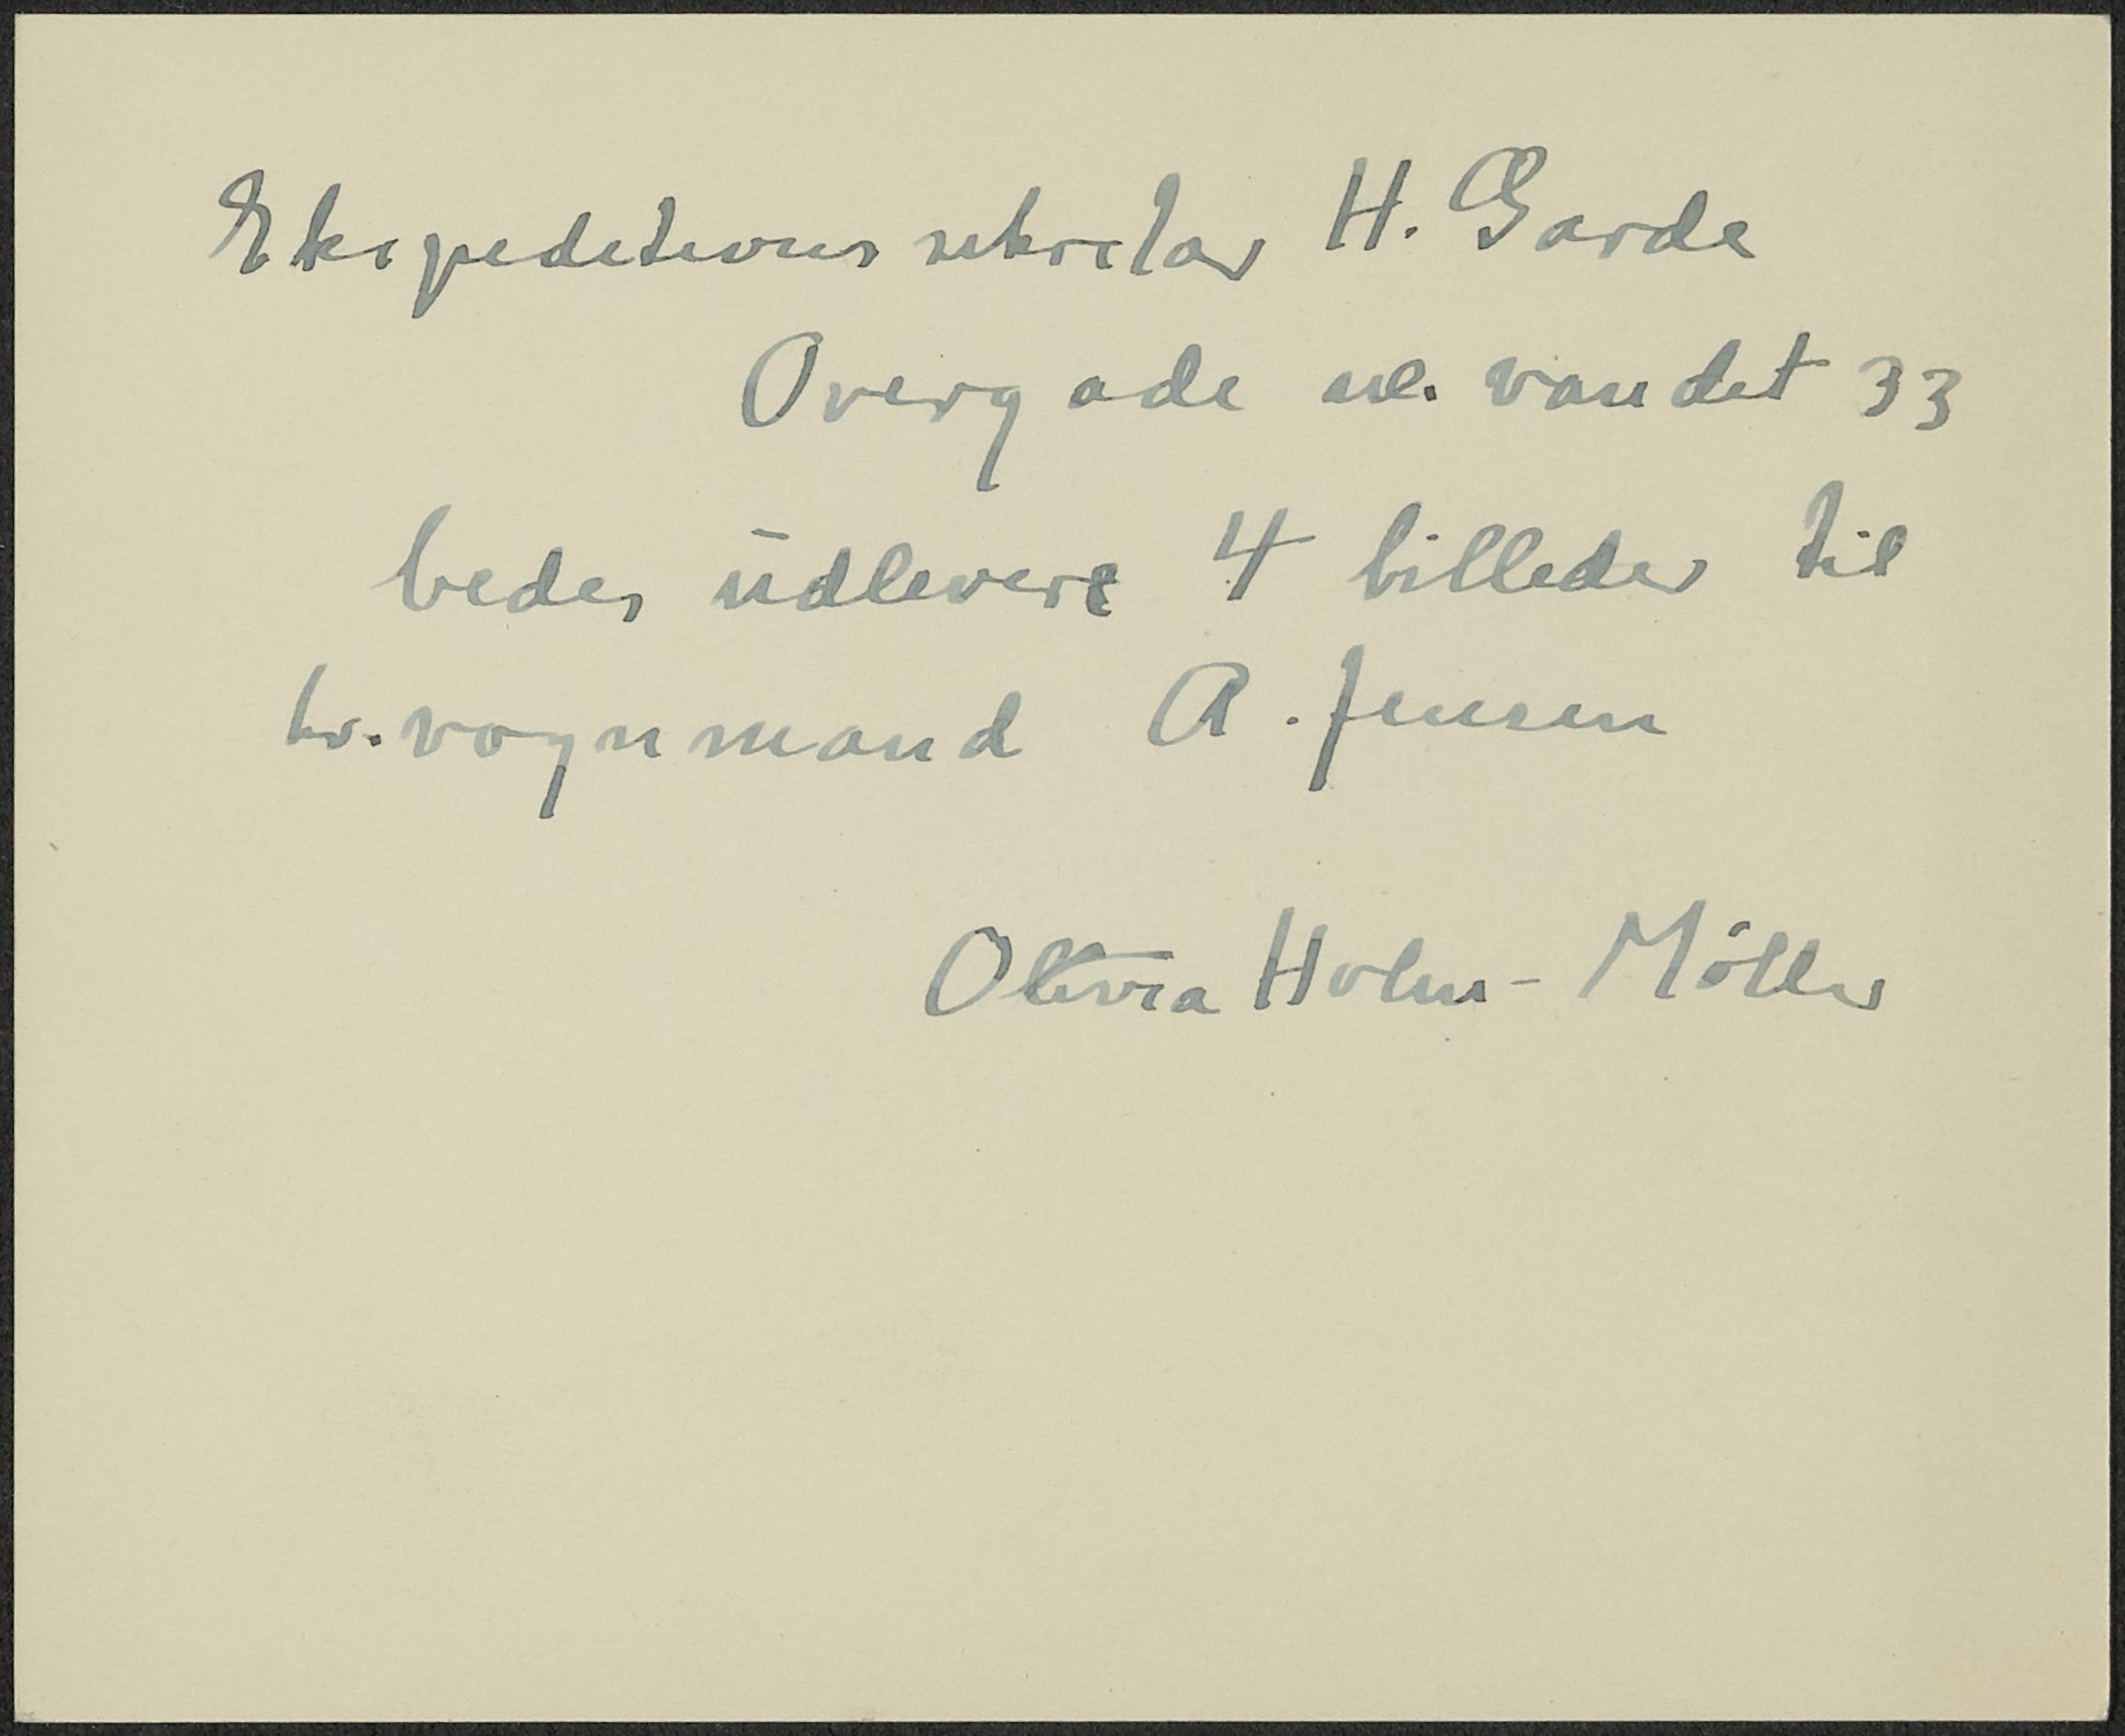 Ekspeditionssekretær H. Garde
Overgade n. vandet 33
bedes ūdlevere 4 billeder til
hr. vognmand A. Jensen
Olivia Holm-Möller